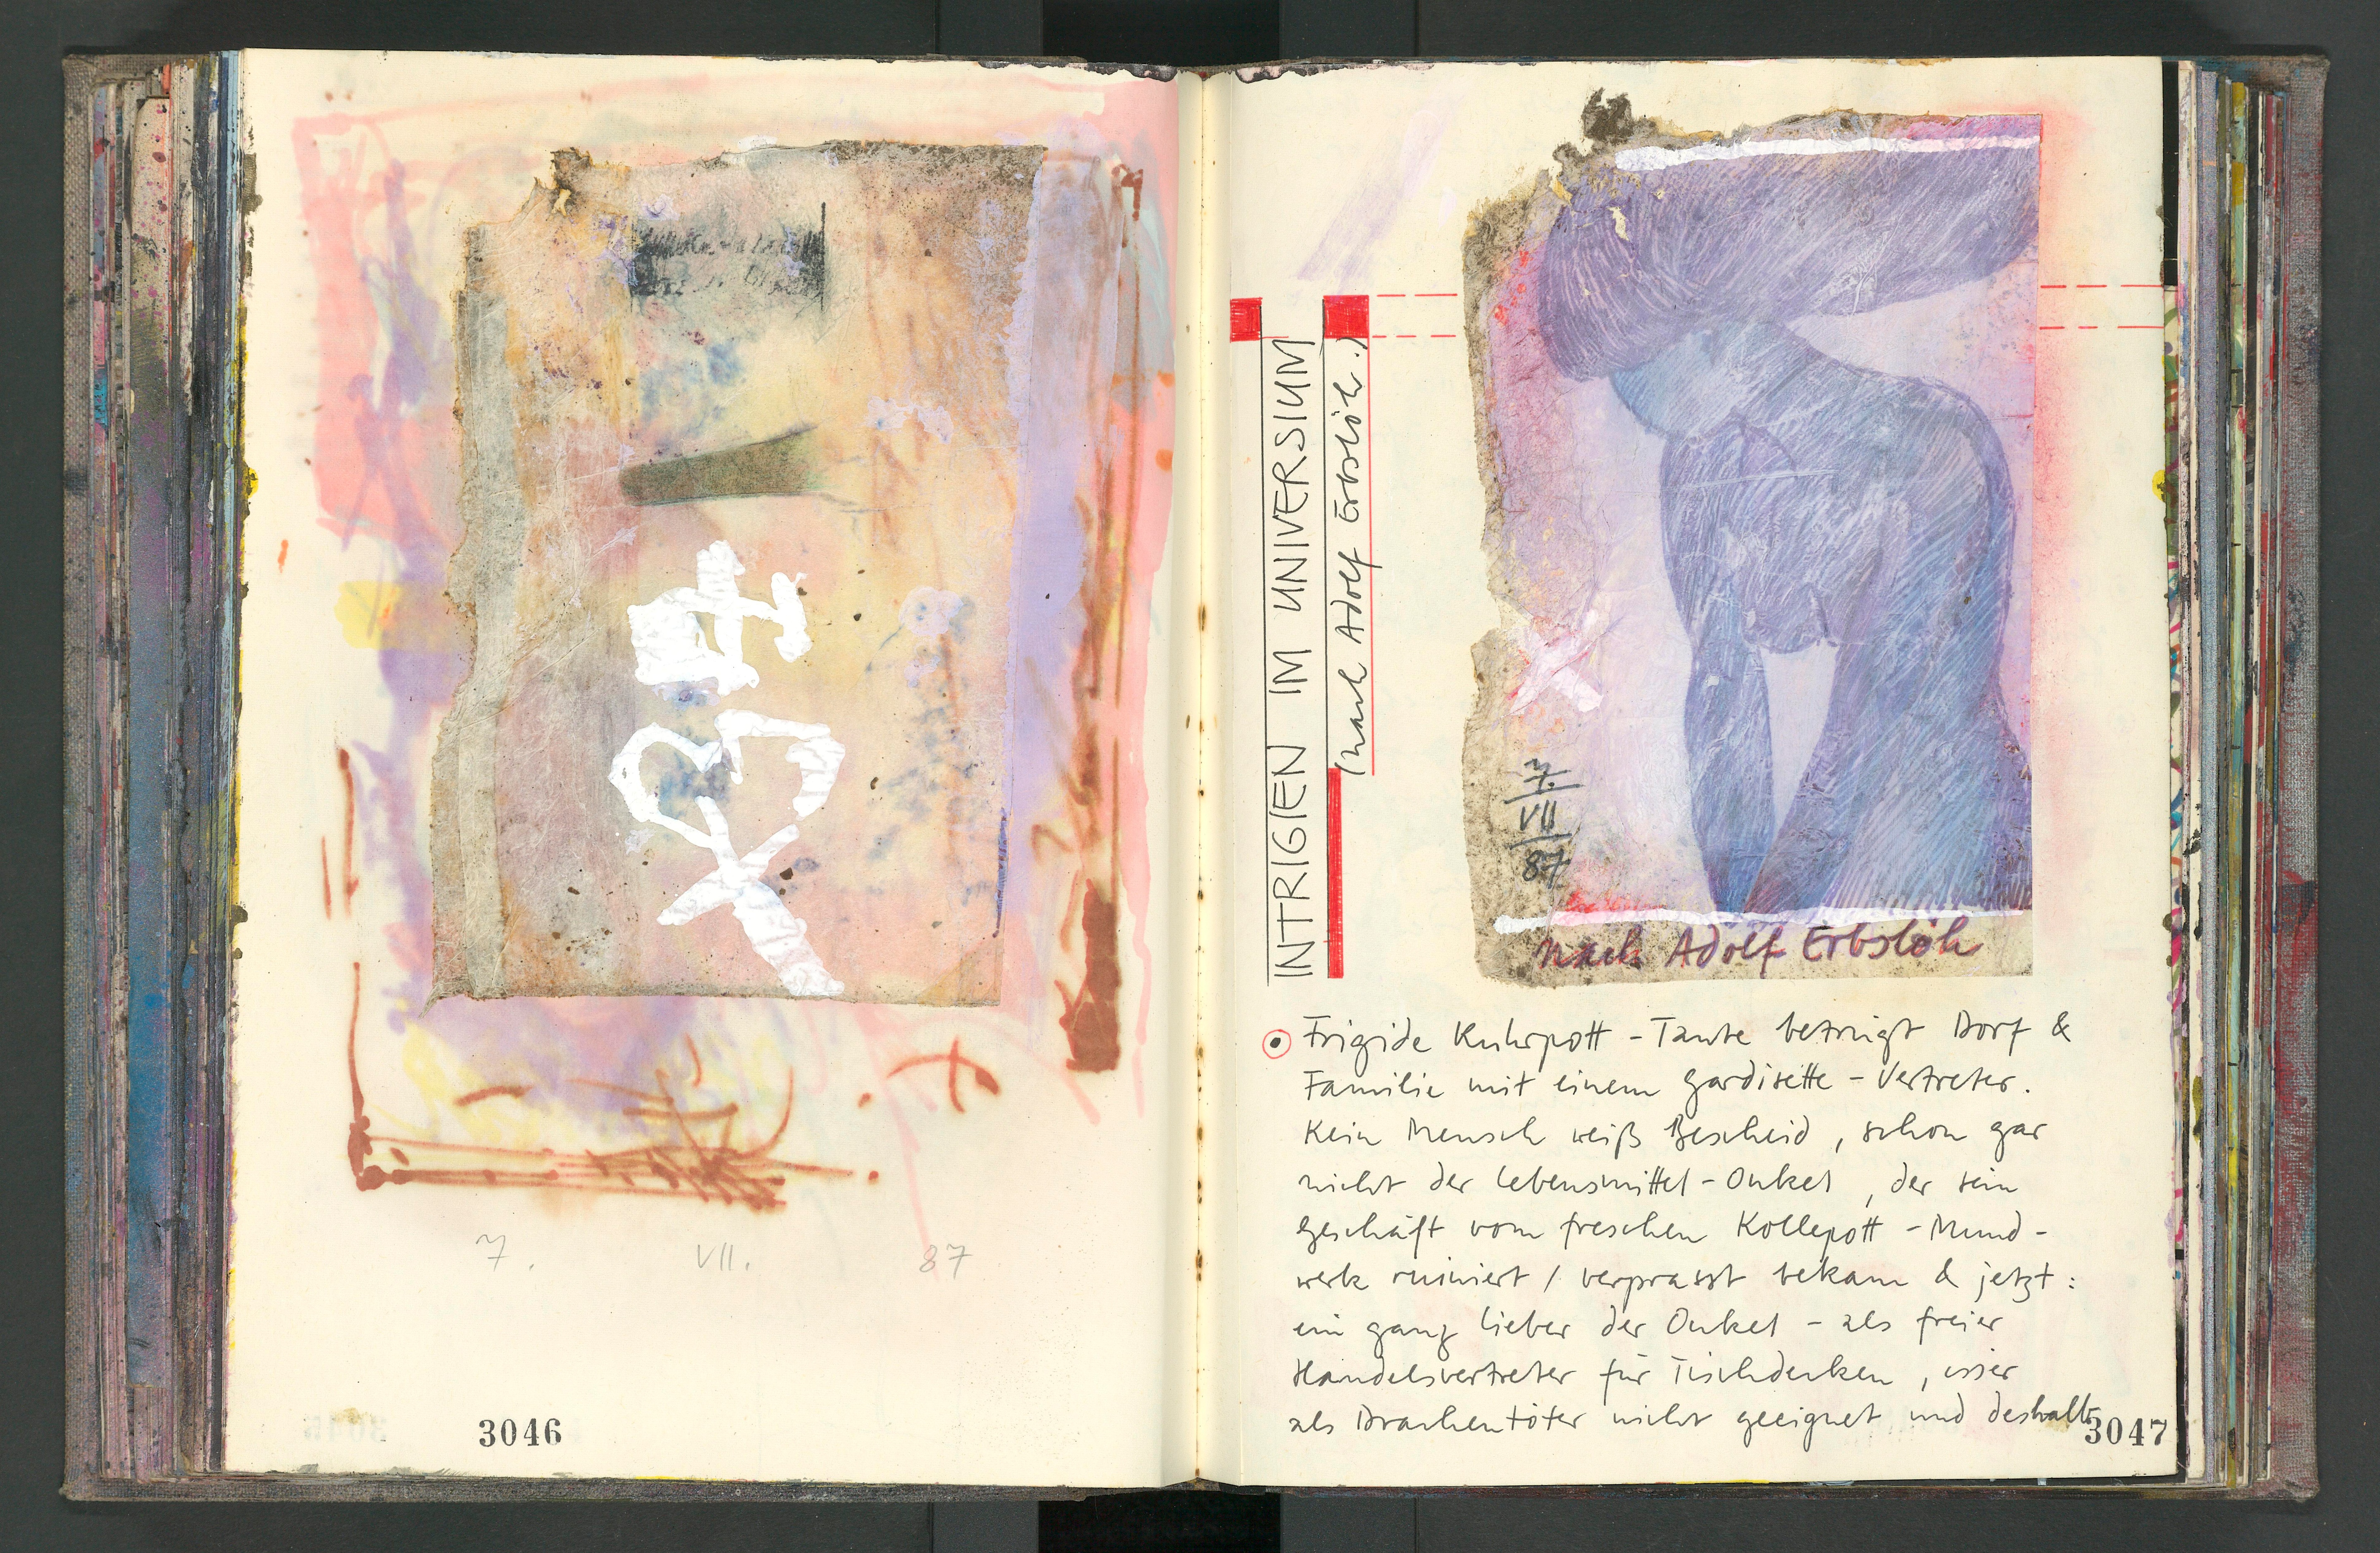 7. VII. 87
3046
INTRIGEN IM UNIVERSIUM
(nach Adolf Erbslöh.)
7.
VII
87
nach Adolf Erbslöh
Frigide Kuhrpott-Tante betrügt Dorf &
Familie mit einem Gardisette-Vertreter.
Kein Mensch weiß Bescheid, schon gar
nicht der Lebensmittel-Onkel, der sein
Geschäft vom freschen Kollepott-Mund-
werk ruiniert / verprasst bekam & jetzt:
ein ganz lieber der Onkel - als freier
Handelsvertreter für Tischdecken, isser
als Drachentöter nicht geeignet und deshalb
3047